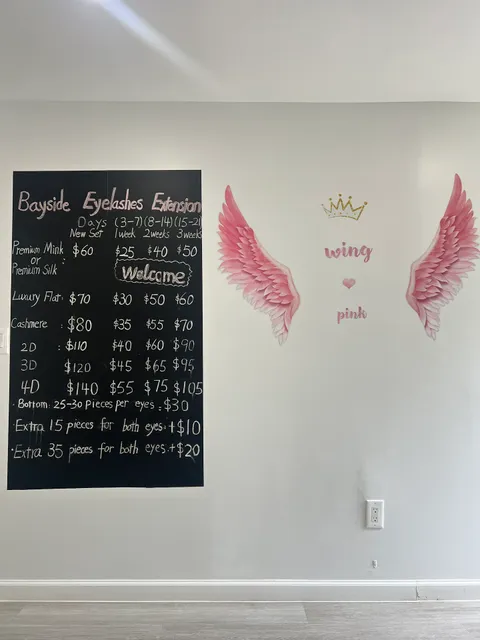 Bayside Eyelashes Extension
Days (3-7) (8-14) (15-21
New Set 1week 2weeks 3weeks
Premium Mink : $60 $25 $40 $50
or
Premium Silk
Welcome
Luxury Flat: $70 $30 $50 $60
Cashmere : $80 $35 $55 $70
2D : $110 $40 $60 $90
3D $120 $45 $65 $95
4D $140 $55 $75 $105
· Bottom: 25-30 pieces per eyes: $30
· Extra 15 pieces for both eyes: +$10
· Extra 35 pieces for both eyes: +$20
wing
pink